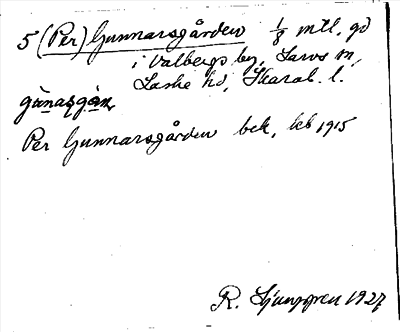 5 (Per) Gunnarsgården 1/8 mtl, gd
i Valbergs by, Larvs sn,
Laske hd, Skarab. l.
gùnasgàn
Per Gunnarsgården bek, leb 1915
R. Ljunggren 1927